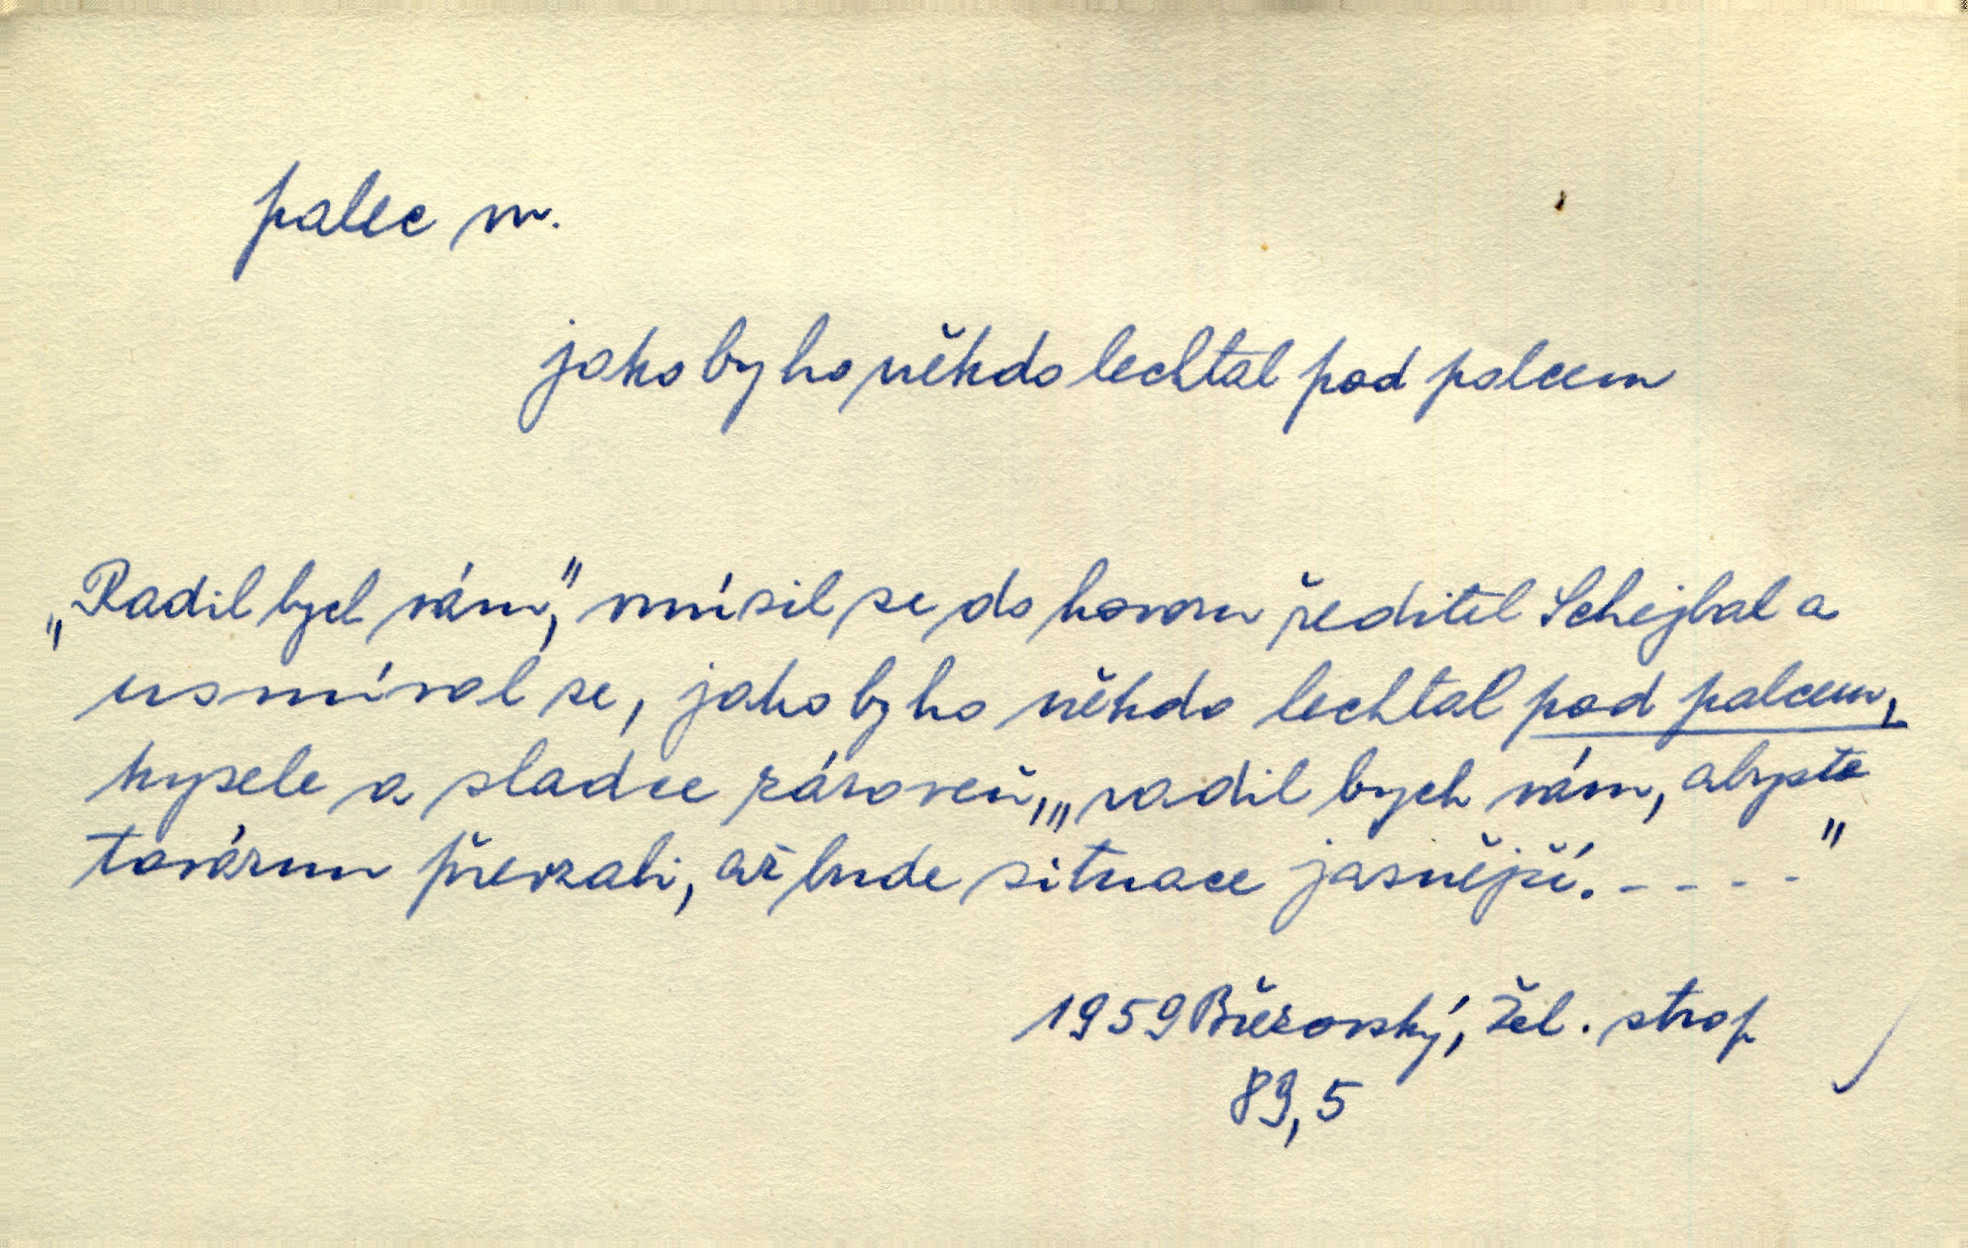 palec m.
jako by ho někdo lechtal pod palcem
„Radil bych vám,“ vmísil se do hovoru ředitel Schejbal a
usmíval se, jako by ho někdo lechtal pod palcem,
kysele a sladce zároveň, „radil bych vám, abyste
továrnu převzali, až bude situace jasnější. - - - -“
1959 Březovský, Žel. strop
89,5